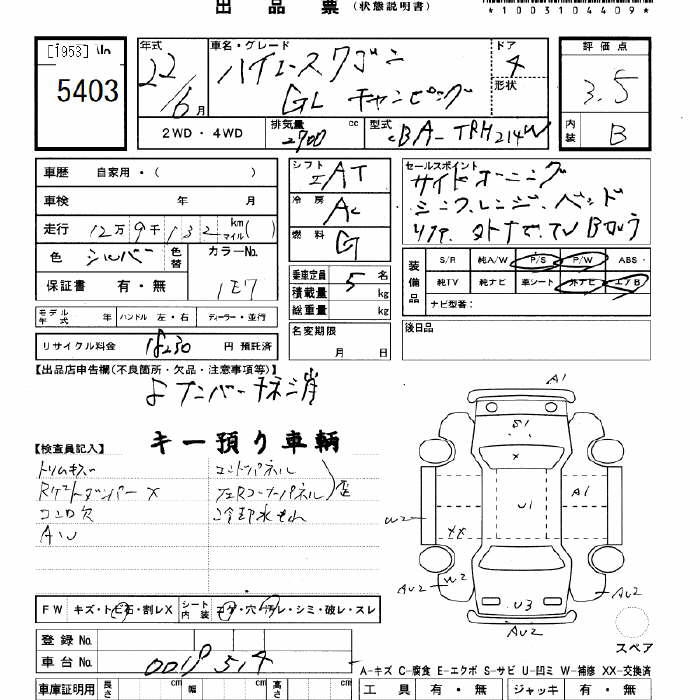 出品票 (状態説明書)
*1003104409*
[1953] 
5403
年式 22/6月
車名・グレード ハイエースワゴン
GL キャンピング
ドア 4
形状
評価点 3.5
内装 B
2WD・4WD
排気量 2700 cc
型式 CBA-TRH214W
車歴 自家用・( )
車検 年 月
走行 12万9千132 km マイル( )
色 シルバー 色替
カラーNo. 1E7
保証書 有・無
モデル年式 年 ハンドル 左・右 ディーラー・並行
リサイクル料金 18230 円 預託済
シフト IAT
冷房 AC
燃料 G
乗車定員 5 名
積載量 kg
総重量 kg
名変期限 月 日
セールスポイント
サイドオーニング
シンク、レンジ、ベッド
リアT、外ナビ、TV Bカメラ
装備品
S/R 純A/W P/S P/W ABS
純TV 純ナビ 革シート 外ナビ エアB
ナビ型番:
後日品
【出品店申告欄(不良箇所・欠品・注意事項等)】
ナンバー
キー預り車輌
【検査員記入】
トリムキズ
Rゲートダンパー X
コンロ欠
AW
エンドパネル
左右Rコーナーパネル
冷却水もれ
FW キズ・トビ石・割レX
シート内装 コゲ・穴・汚レ・シミ・破レ・スレ
登録No.
車台No. 0019514
車庫証明用 長さ cm 幅 cm 高さ cm
A1
S1
X
U1
A1
W2
XX
AU2
W2
U3
AU2
AU2
スペア
A-キズ C-腐食 E-エクボ S-サビ U-凹ミ W-補修 XX-交換済
工具 有・無 ジャッキ 有・無